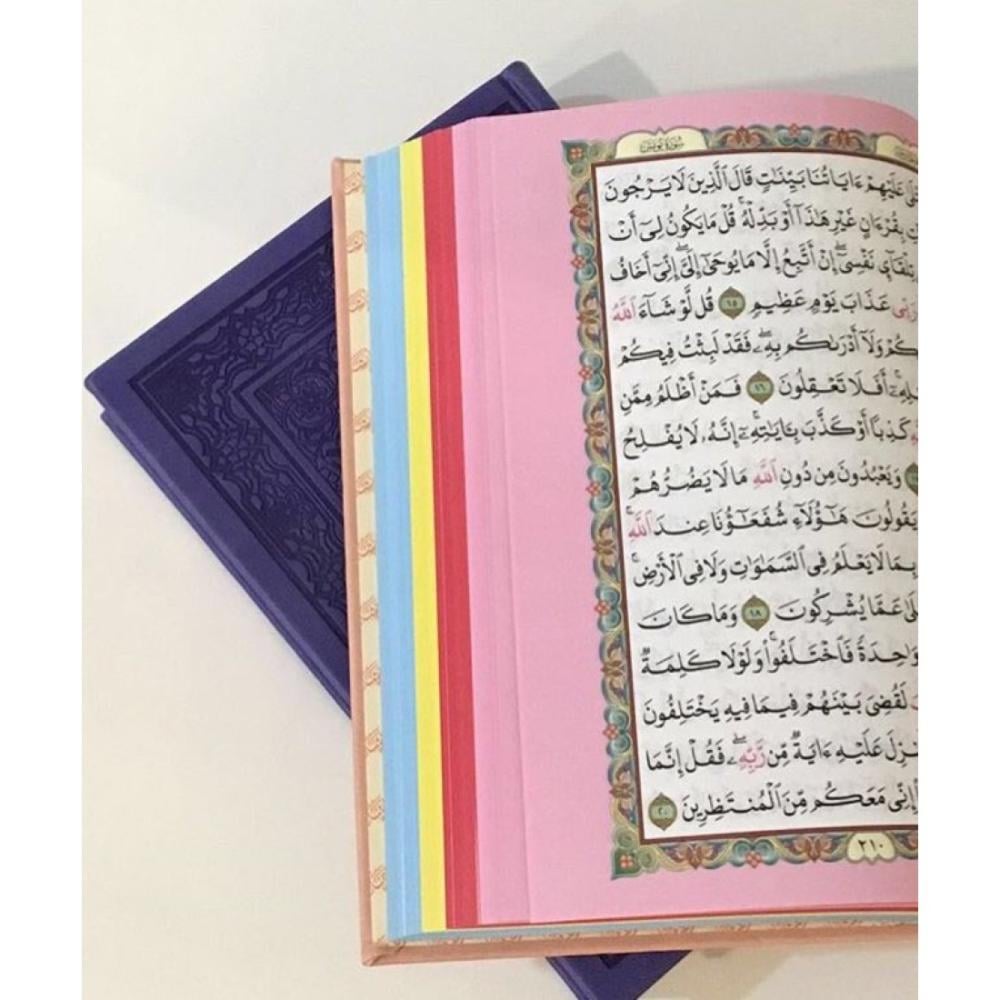 سُورَةُ يُونُسَ
عَلَيْهِمْ ءَايَاتُنَا بَيِّنَٰتٍ قَالَ ٱلَّذِينَ لَا يَرْجُونَ
بِقُرْءَانٍ غَيْرِ هَٰذَآ أَوْ بَدِّلْهُ ۚ قُلْ مَا يَكُونُ لِىٓ أَنْ
تِلْقَآئِ نَفْسِىٓ ۖ إِنْ أَتَّبِعُ إِلَّا مَا يُوحَىٰٓ إِلَىَّ ۖ إِنِّىٓ أَخَافُ
رَبِّى عَذَابَ يَوْمٍ عَظِيمٍ ١٥ قُل لَّوْ شَآءَ ٱللَّهُ
وَلَآ أَدْرَىٰكُم بِهِۦ ۖ فَقَدْ لَبِثْتُ فِيكُمْ
أَفَلَا تَعْقِلُونَ ١٦ فَمَنْ أَظْلَمُ مِمَّنِ
كَذِبًا أَوْ كَذَّبَ بِـَٔايَٰتِهِۦٓ ۚ إِنَّهُۥ لَا يُفْلِحُ
وَيَعْبُدُونَ مِن دُونِ ٱللَّهِ مَا لَا يَضُرُّهُمْ
يَقُولُونَ هَٰٓؤُلَآءِ شُفَعَٰٓؤُنَا عِندَ ٱللَّهِ ۚ
بِمَا لَا يَعْلَمُ فِى ٱلسَّمَٰوَٰتِ وَلَا فِى ٱلْأَرْضِ ۚ
عَمَّا يُشْرِكُونَ ١٨ وَمَا كَانَ
وَٰحِدَةً فَٱخْتَلَفُوا۟ ۚ وَلَوْلَا كَلِمَةٌ
لَقُضِىَ بَيْنَهُمْ فِيمَا فِيهِ يَخْتَلِفُونَ
عَلَيْهِ ءَايَةٌ مِّن رَّبِّهِۦ ۖ فَقُلْ إِنَّمَا
إِنِّى مَعَكُم مِّنَ ٱلْمُنتَظِرِينَ ٢٠
٢١٠